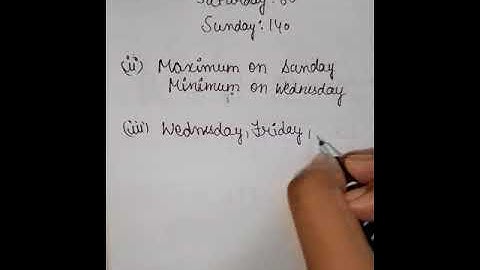 Saturday: 80
Sunday: 140
(ii) Maximum on Sunday
Minimum on Wednesday
(iii) Wednesday, Friday,